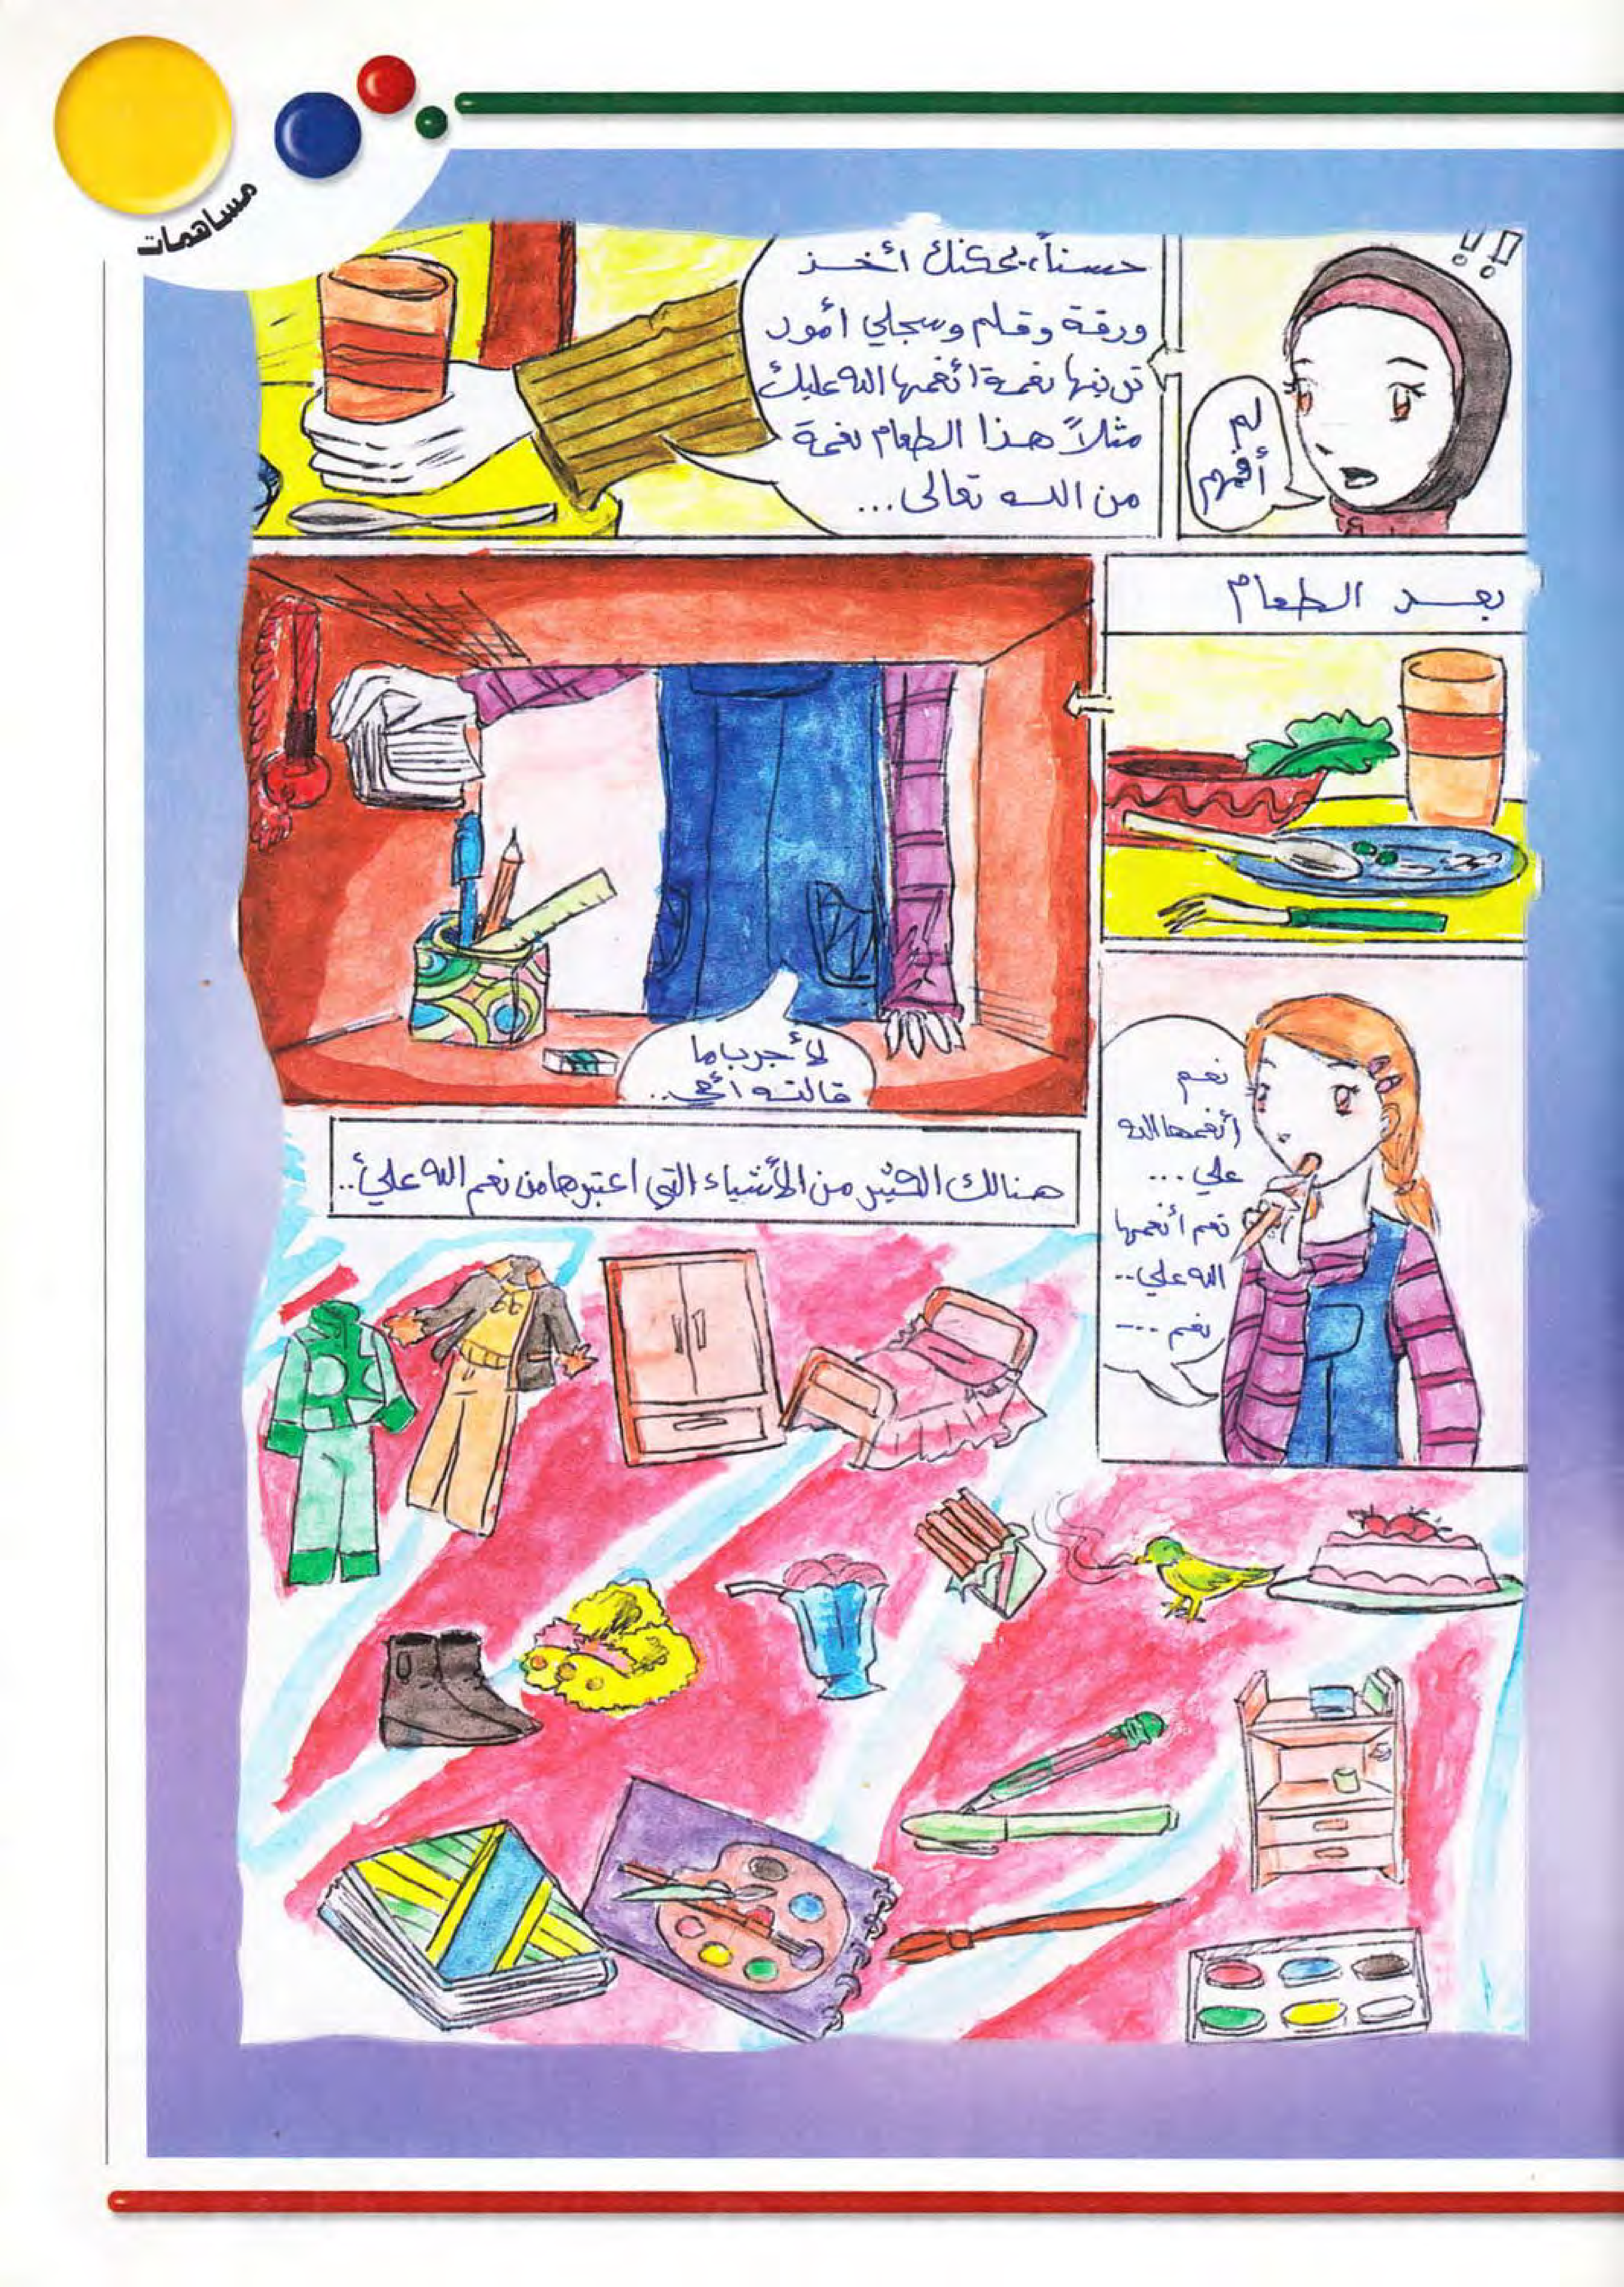 مساهمات
!!
لم
أفهم
حسناً، يمكنك أخذ
ورقة وقلم وسجلي أمور
ترينها نعمة أنعمها الله عليك
مثلاً هذا الطعام نعمة
من الله تعالى...
بعد الطعام
لأجرب ما
قالته أمي..
نعم
أنعمها الله
علي...
نعم أنعمها
الله علي..
نعم ....
هنالك الكثير من الأشياء التي اعتبرها من نعم الله عليّ..